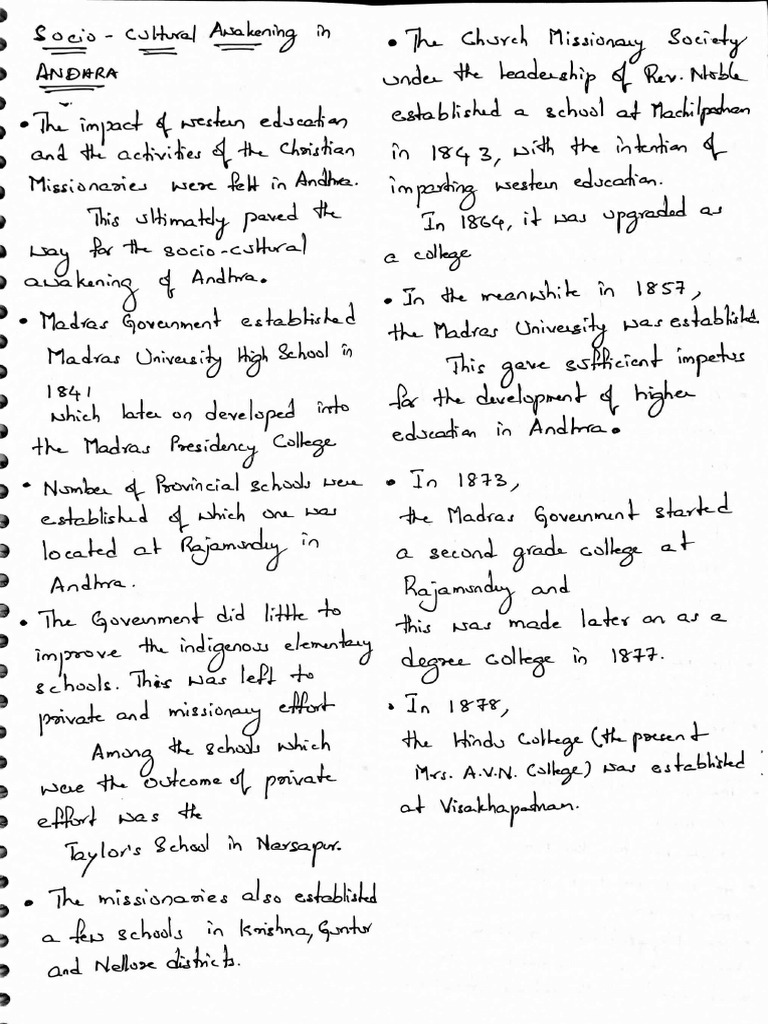 Socio - Cultural Awakening in
ANDHRA
• The impact of western education
and the activities of the Christian
Missionaries were felt in Andhra.
This ultimately paved the
way for the socio-cultural
awakening of Andhra.
• Madras Government established
Madras University High School in
1841
which later on developed into
the Madras Presidency College
• Number of Provincial schools were
established of which one was
located at Rajamundry in
Andhra.
• The Government did little to
improve the indigenous elementary
schools. This was left to
private and missionary effort
Among the schools which
were the outcome of private
effort was the
Taylor's School in Narsapur.
• The missionaries also established
a few schools in Krishna, Guntur
and Nellore districts.
• The Church Missionary Society
under the leadership of Rev. Noble
established a school at Machilipatnam
in 1843, with the intention of
imparting western education.
In 1864, it was upgraded as
a college
• In the meanwhile in 1857,
the Madras University was established.
This gave sufficient impetus
for the development of higher
education in Andhra.
• In 1873,
the Madras Government started
a second grade college at
Rajamundry and
this was made later on as a
degree college in 1877.
• In 1878,
the Hindu College (the present
Mrs. A.V.N. College) was established
at Visakhapatnam.